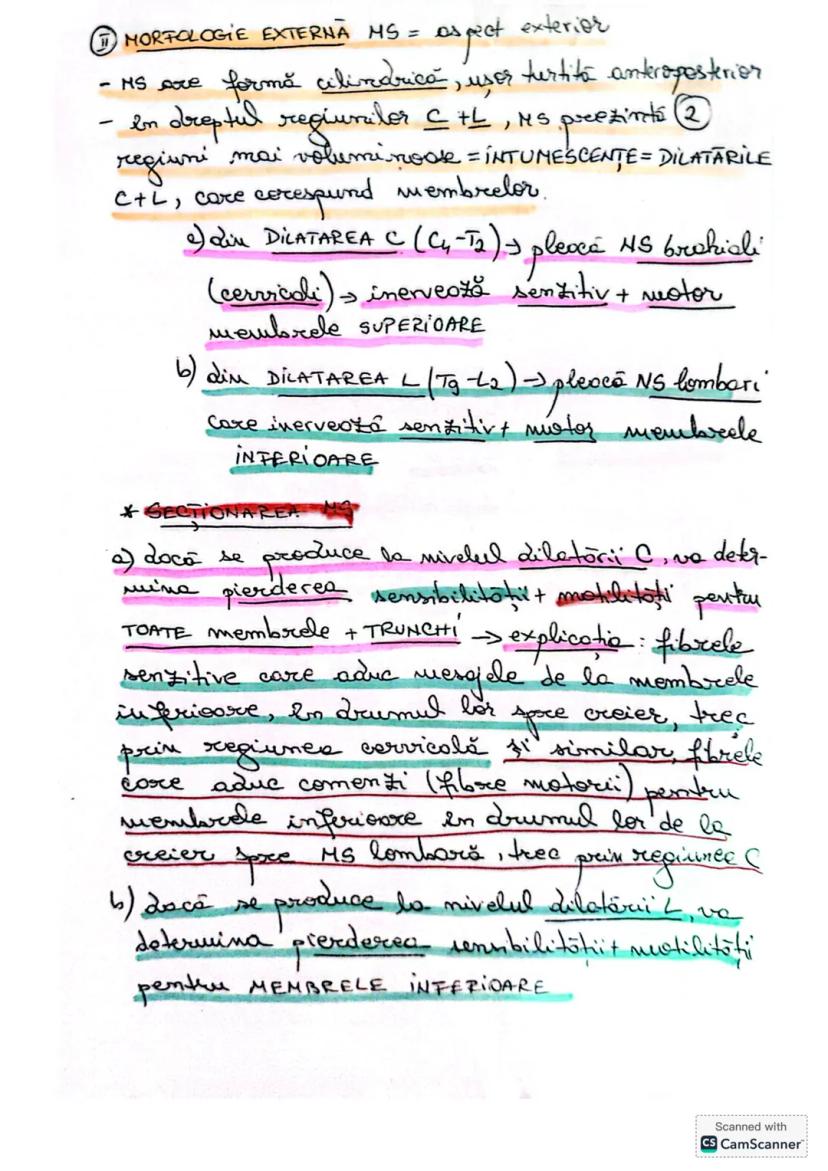 II MORFOLOGIE EXTERNĂ MS = aspect exterior
- MS are formă cilindrică, ușor turtită anteroposterior
- în dreptul regiunilor C + L, MS prezintă 2
regiuni mai voluminoase = INTUMESCENȚE = DILATĂRILE
C+L, care corespund membrelor.
a) din DILATAREA C (C4-T2) → pleacă NS brahiali
(cervicali) → inervează senzitiv + motor
membrele SUPERIOARE
b) din DILATAREA L (T9-L2) → pleacă NS lombari
care inervează senzitiv + motor membrele
INFERIOARE
* SECȚIONAREA MS
a) dacă se produce la nivelul dilatării C, va deter-
mina pierderea sensibilității + motilității pentru
TOATE membrele + TRUNCHI → explicația: fibrele
senzitive care aduc mesajele de la membrele
inferioare, în drumul lor spre creier, trec
prin regiunea cervicală și similar, fibrele
care aduc comenzi (fibre motorii) pentru
membrele inferioare în drumul lor de la
creier spre MS lombară, trec prin regiunea C
b) dacă se produce la nivelul dilatării L, va
determina pierderea sensibilității + motilității
pentru MEMBRELE INFERIOARE
Scanned with
CS CamScanner